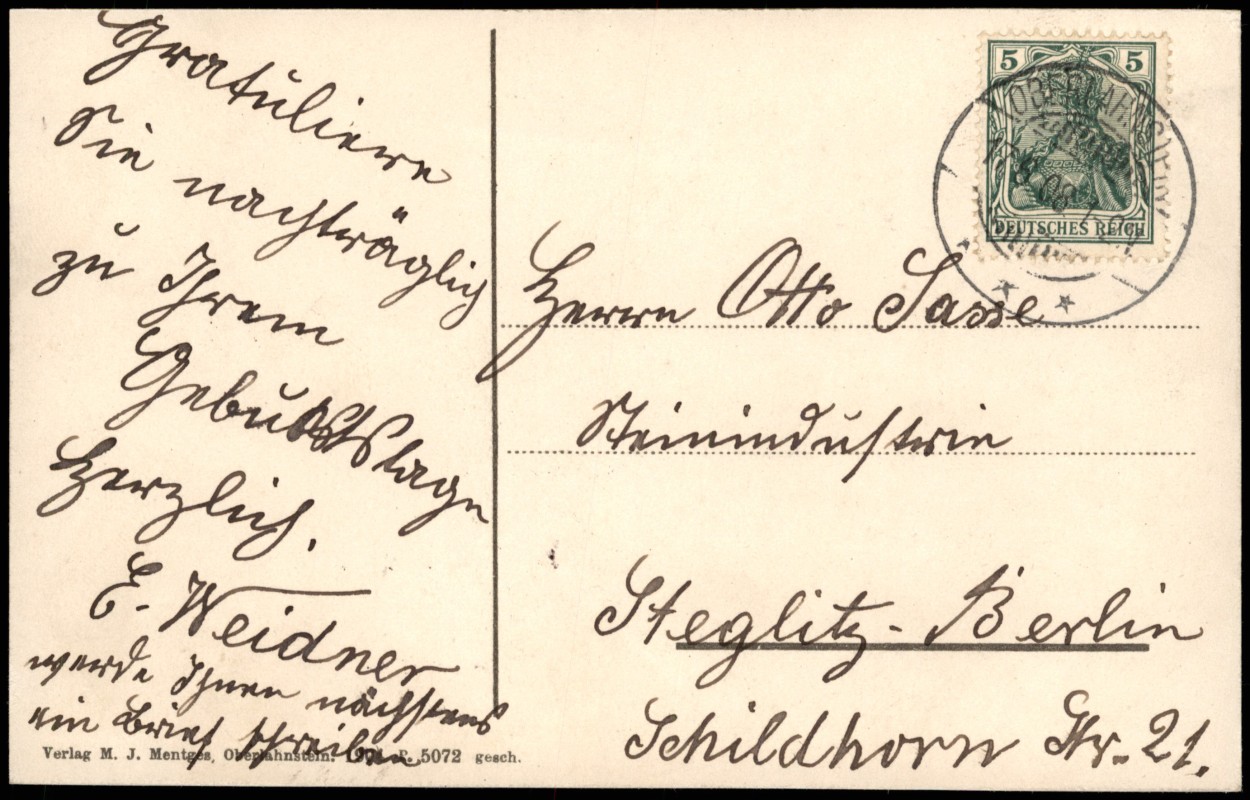 Gratuliere
Sie nachträglich
zu Ihrem
Geburtstage
Herzlich.
E. Weidner
werde Ihnen nächstens
ein Brief schreiben
Verlag M. J. Mentges, Oberlahnstein. P. 5072 gesch.
5 5
DEUTSCHES REICH
OBERLAHNSTEIN
08
Herrn Otto Sasse
Steinindustrie
Steglitz-Berlin
Schildhorn Str. 21.